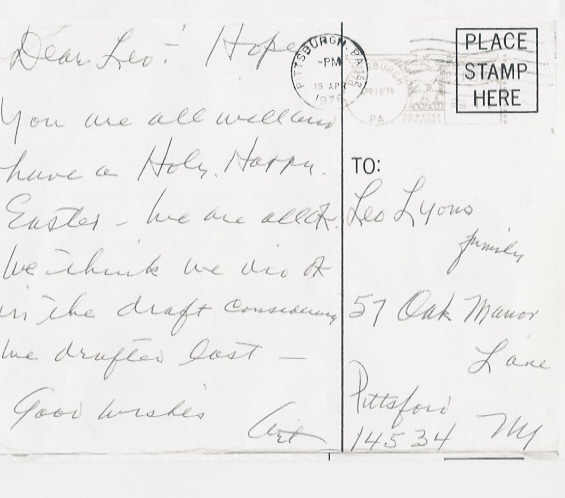 Dear Leo:- Hope
You are all well and
have a Holy, Happy.
Easter - We are all OK.
We think we did OK
in the draft considering
we drafted last -
Good Wishes
Art
PITTSBURGH, PA 152
-PM
15 APR
1976
PA
PLACE
STAMP
HERE
TO:
Leo Lyons
family
57 Oak Manor
Lane
Pittsford
14534 NY